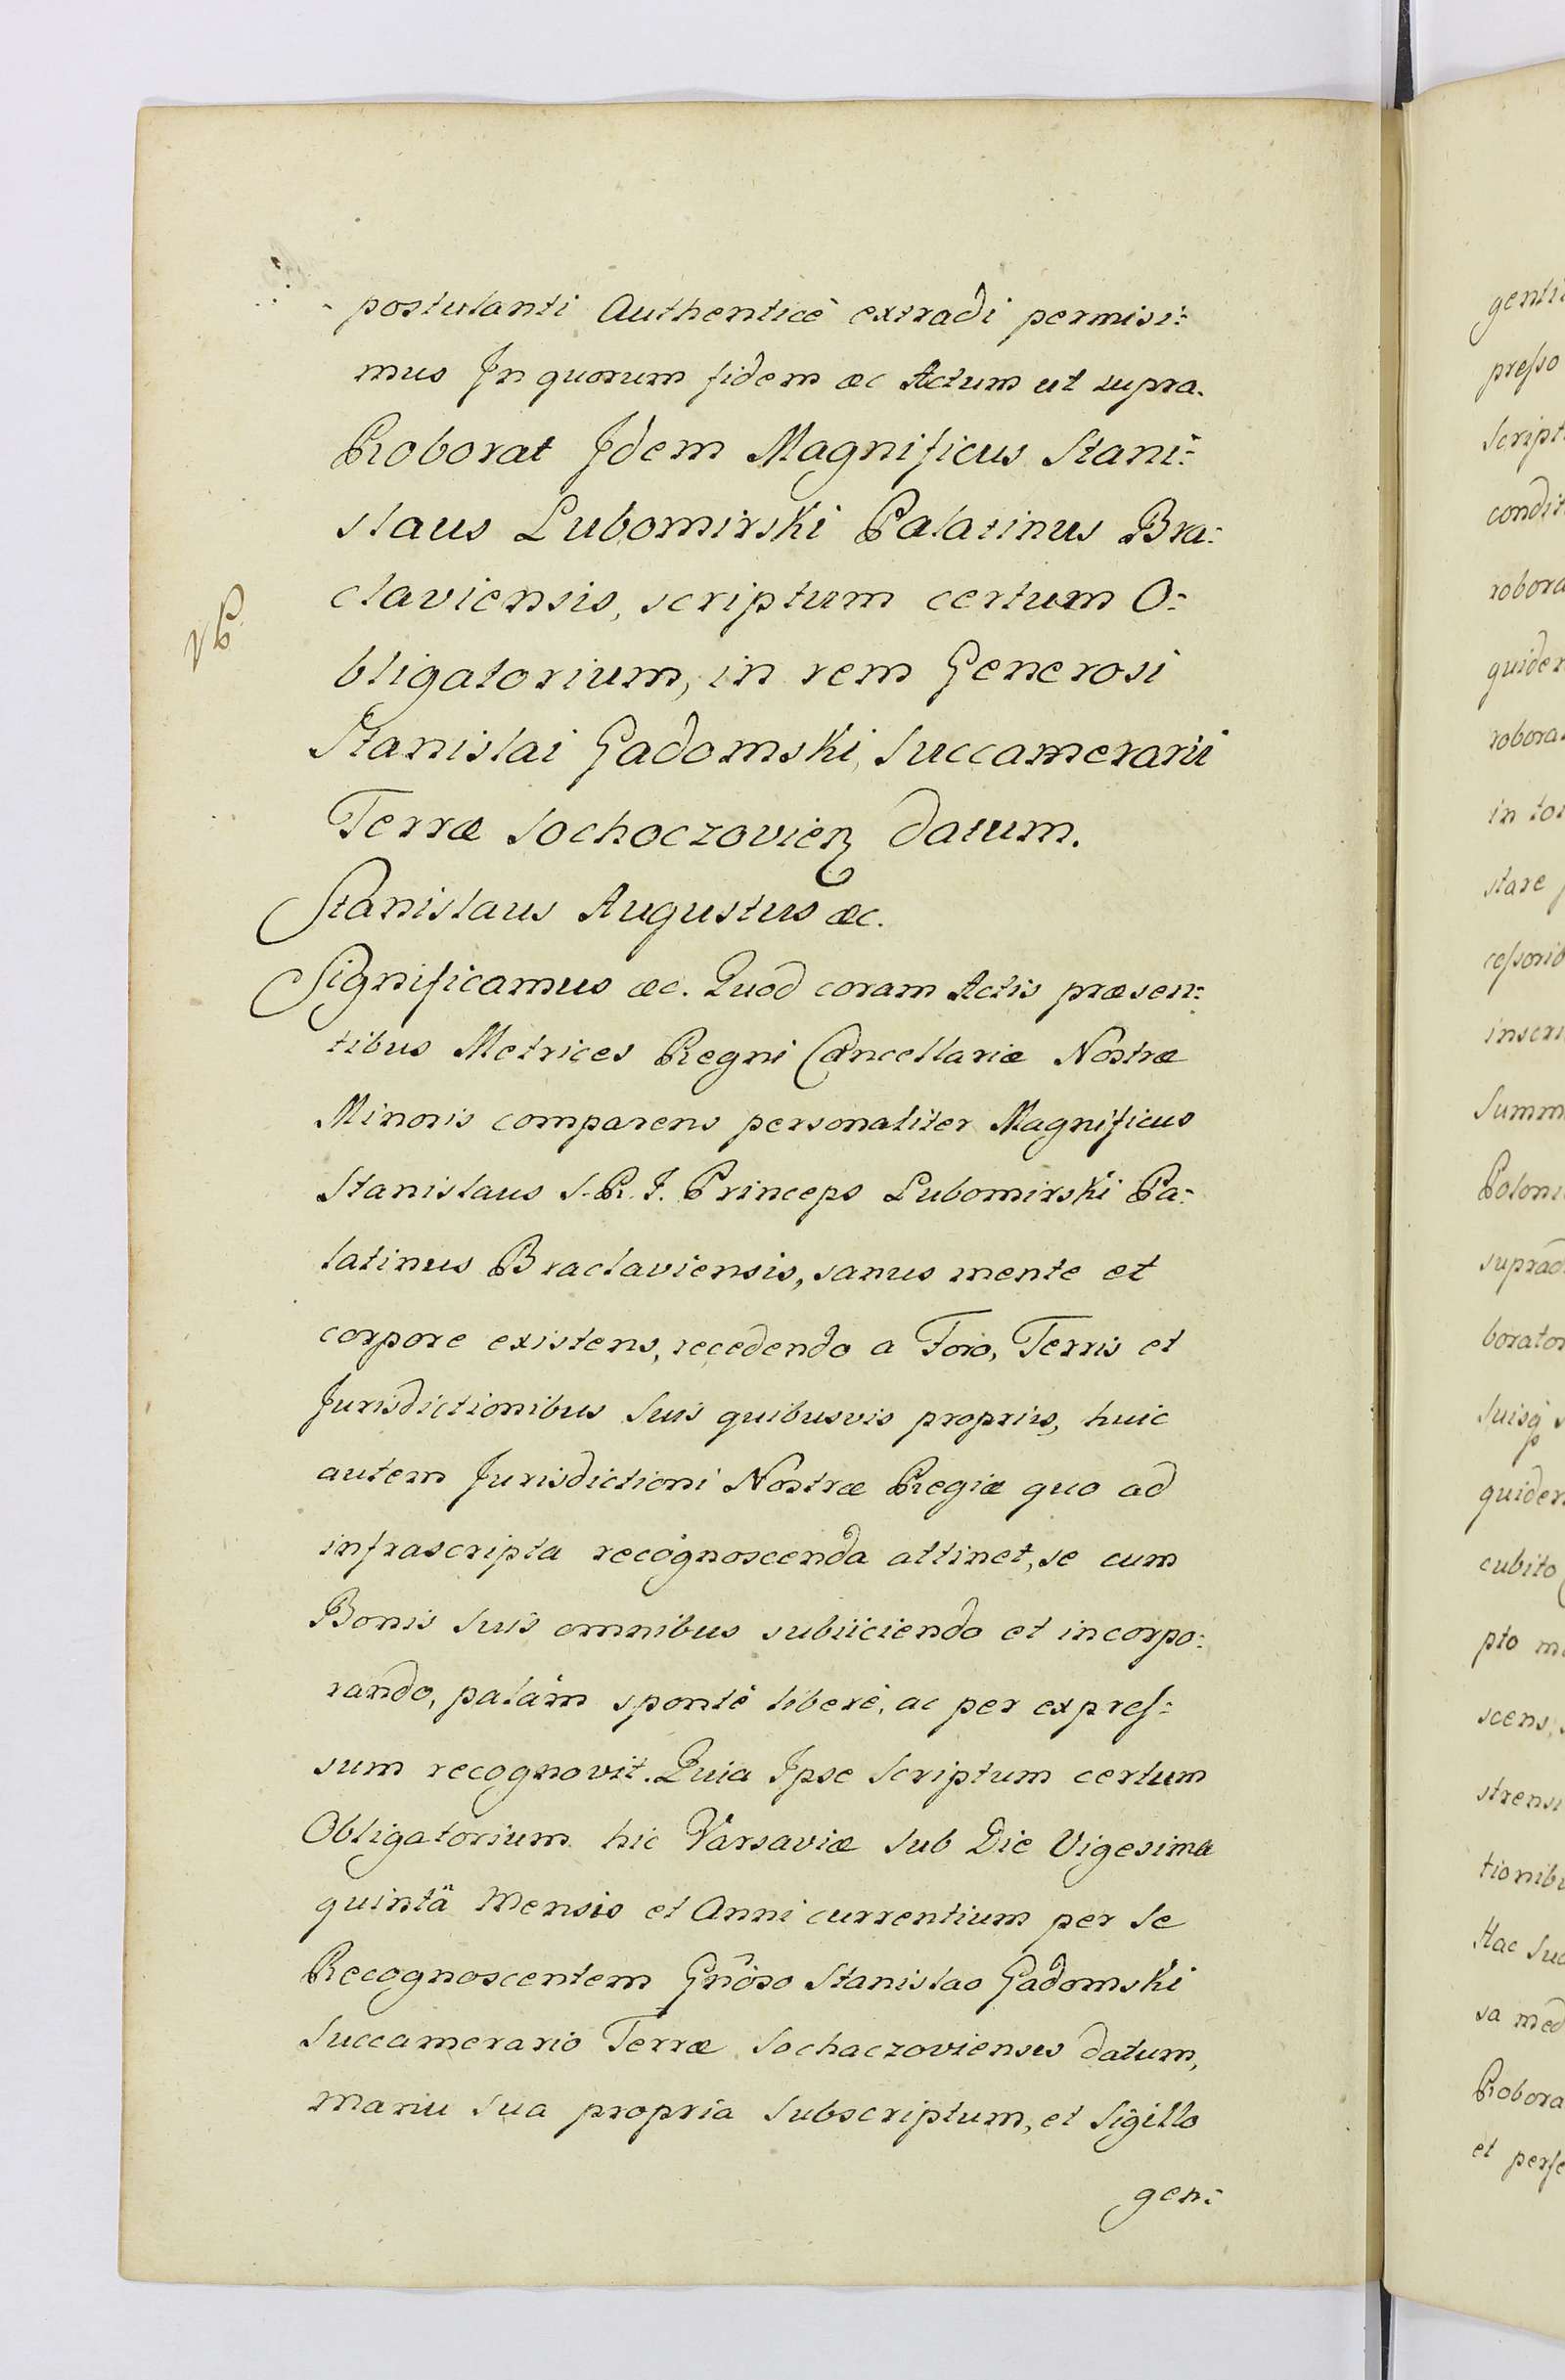 postulanti Authenticè extradi permisi:
mus In quorum fidem &c Actum ut supra.
Roborat Idem Magnificus Stani:
slaus Lubomirski Palatinus Bra:
claviensis, scriptum certum O:
bligatorium, in rem Generosi
Stanislai Gadomski, Succamerarii
Terræ Sochoczovien datum.
Stanislaus Augustus &c.
Significamus &c. Quod coram Actis præsen:
tibus Metrices Regni Cancellariæ Nostræ
Minoris comparens personaliter Magnificus
Stanislaus S. R. I. Princeps Lubomirski Pa:
latinus Braclaviensis, sanus mente et
corpore existens, recedendo a Foro, Terris et
Jurisdictionibus Suis quibusvis propriis, huic
autem Jurisdictioni Nostræ Regiæ quo ad
infrascripta recognoscenda attinet, se cum
Bonis Suis omnibus subiiciendo et incorpo:
rando, palàm spontè liberè, ac per expres:
sum recognovit. Quia Ipse Scriptum certum
Obligatorium hic Varsaviæ Sub Die Vigesima
quintâ Mensis et Anni currentium per Se
Recognoscentem Gnoso Stanislao Gadomski
Succamerario Terræ Sochaczoviensis datum,
Manu Sua propria Subscriptum, et Sigillo
gen:
genti
presso
Script
condit
robora
quidem
robora
in to
stare
cessorib
inscri
Summ
Poloni
suprad
borator
Suisq
quidem
cubito
pto m
scens,
strensi
tionibu
Hac Suc
sa med
Robora
et perso